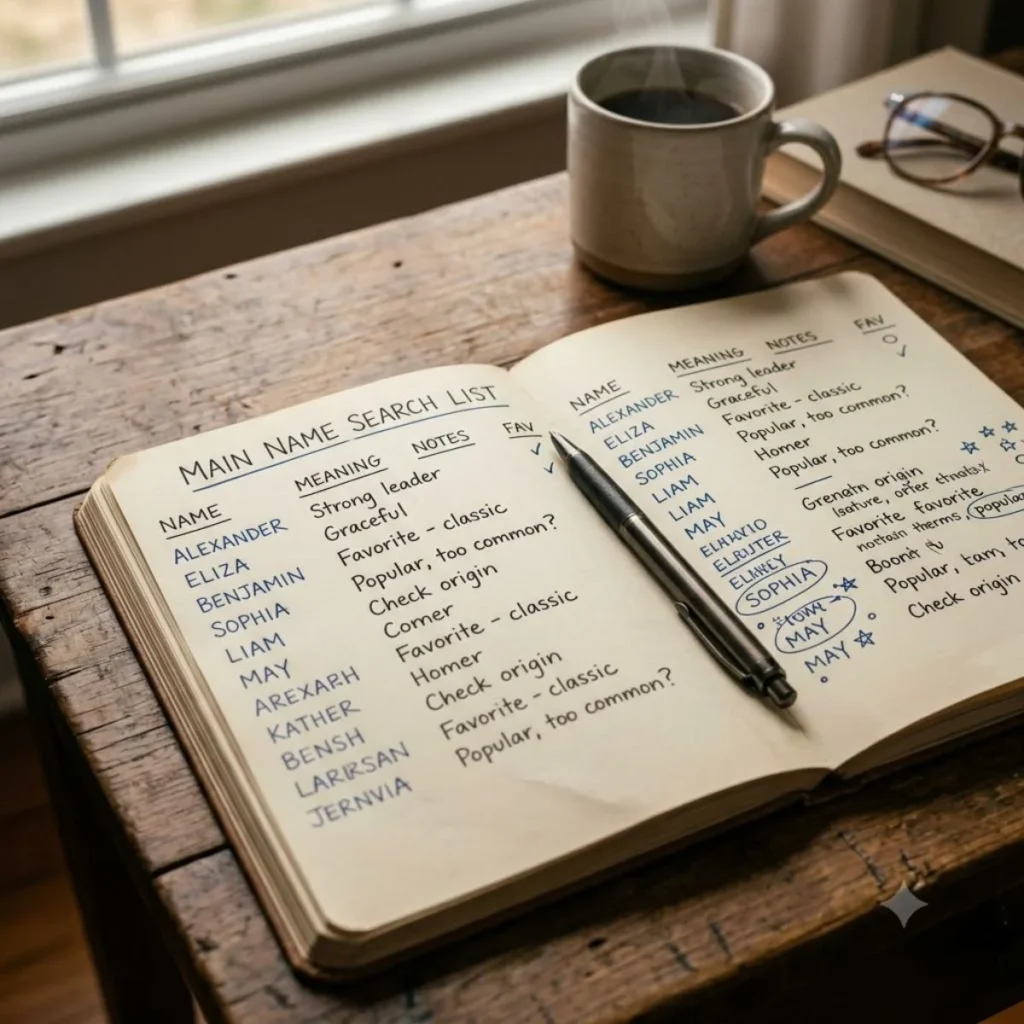 MAIN NAME SEARCH LIST
NAME MEANING NOTES FAV
ALEXANDER Strong leader
ELIZA Graceful
BENJAMIN Favorite - classic
SOPHIA Popular, too common?
LIAM Check origin
MAY Comer
AREXARH Favorite - classic
KATHER Homer
BENSH Check origin
LARRSAN Favorite - classic
JERNVIA Popular, too common?
NAME MEANING NOTES FAV
ALEXANDER Strong leader
ELIZA Graceful
BENJAMIN Favorite - classic
SOPHIA Popular, too common?
LIAM Homer
LIAM Popular, too common?
MAY
origin
Favorite favorite
SOPHIA Popular,
MAY Check origin
MAY